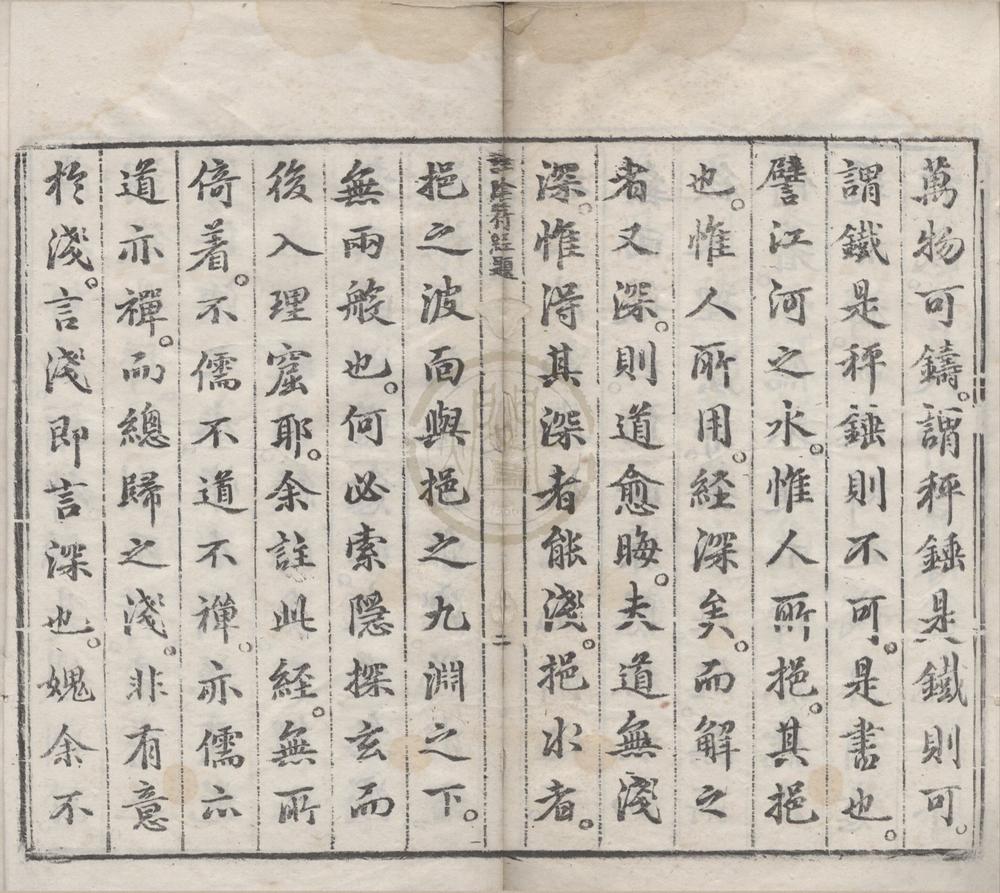 萬物可鑄。謂秤錘是鐵則可。
謂鐵是秤錘則不可。是書也。
譬江河之水。惟人所挹。其挹
也。惟人所用。経深矣。而解之
者又深。則道愈晦。夫道無淺
深。惟淂其深者能淺。挹水者。
註陰符経題
二
挹之波面與挹之九淵之下。
無兩般也。何必索隱探玄而
後入理窟耶。余註此経。無所
倚着。不儒不道不禪。亦儒亦
道亦禪。而總歸之淺。非有意
於淺。言淺即言深也。媿余不